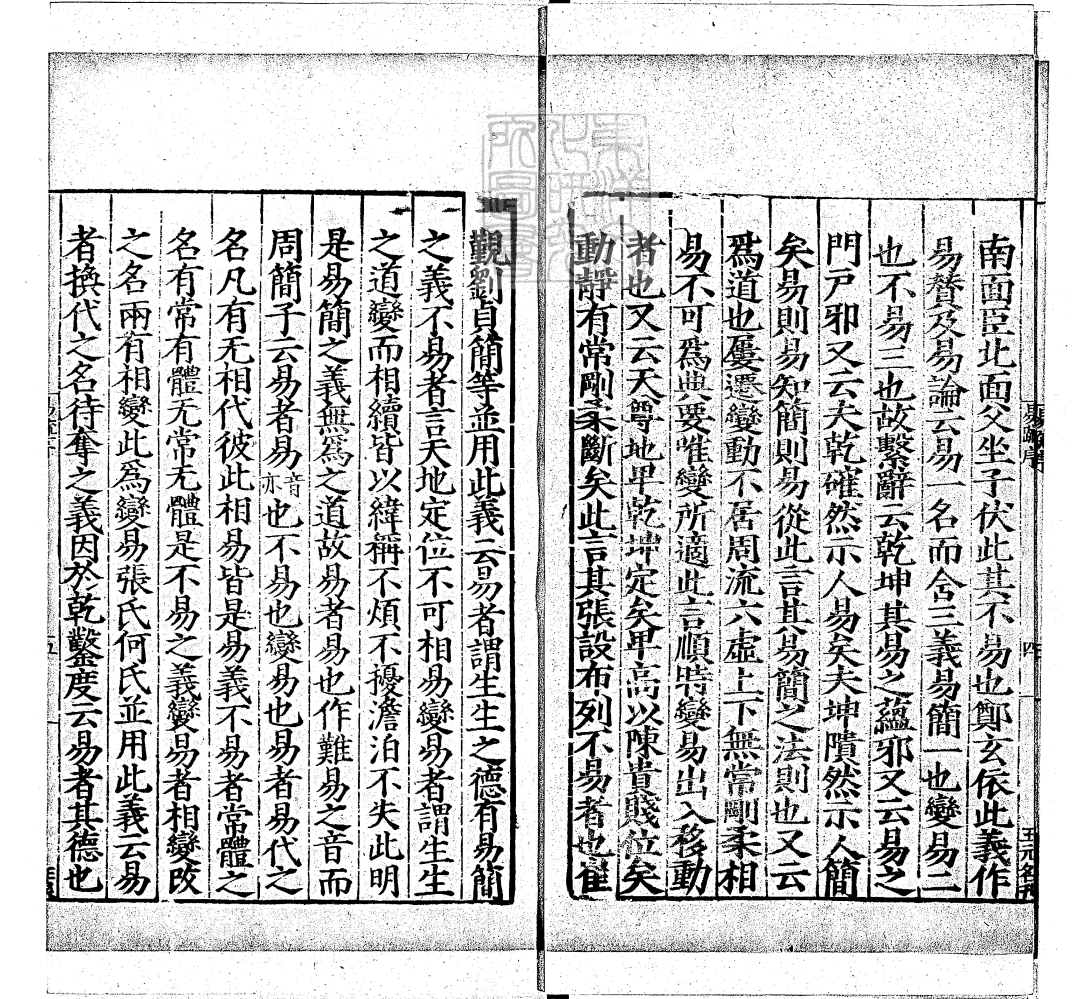 南面臣北面父坐子伏此其不易也鄭玄依此義作
易贊及易論云易一名而含三義易簡一也變易二
也不易三也故繫辭云乾坤其易之蘊邪又云易之
門戶邪又云夫乾確然示人易矣夫坤隤然示人簡
矣易則易知簡則易從此言其易簡之法則也又云
爲道也屢遷變動不居周流六虛上下無常剛柔相
易不可爲典要唯變所適此言順時變易出入移動
者也又云天尊地卑乾坤定矣卑高以陳貴賤位矣
動靜有常剛柔斷矣此言其張設布列不易者也崔
覲劉貞簡等並用此義云易者謂生生之德有易簡
之義不易者言天地定位不可相易變易者謂生生
之道變而相續皆以緯稱不煩不擾澹泊不失此明
是易簡之義無爲之道故易者易也作難易之音而
周簡子云易者易音亦也不易也變易也易者易代之
名凡有无相代彼此相易皆是易義不易者常體之
名有常有體无常无體是不易之義變易者相變改
之名兩有相變此爲變易張氏何氏並用此義云易
者換代之名待奪之義因於乾鑿度云易者其德也
易疏序
四
五